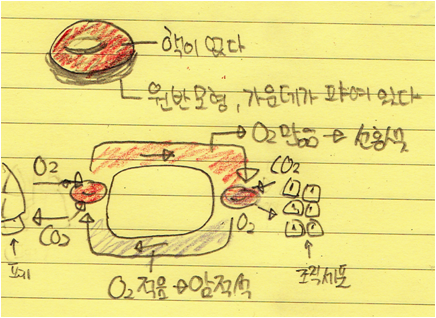 핵이 없다
원반모형, 가운데가 파여 있다
O₂ 많음 → 선홍색
O₂
CO₂
CO₂
O₂
조직세포
O₂ 적음 → 암적색